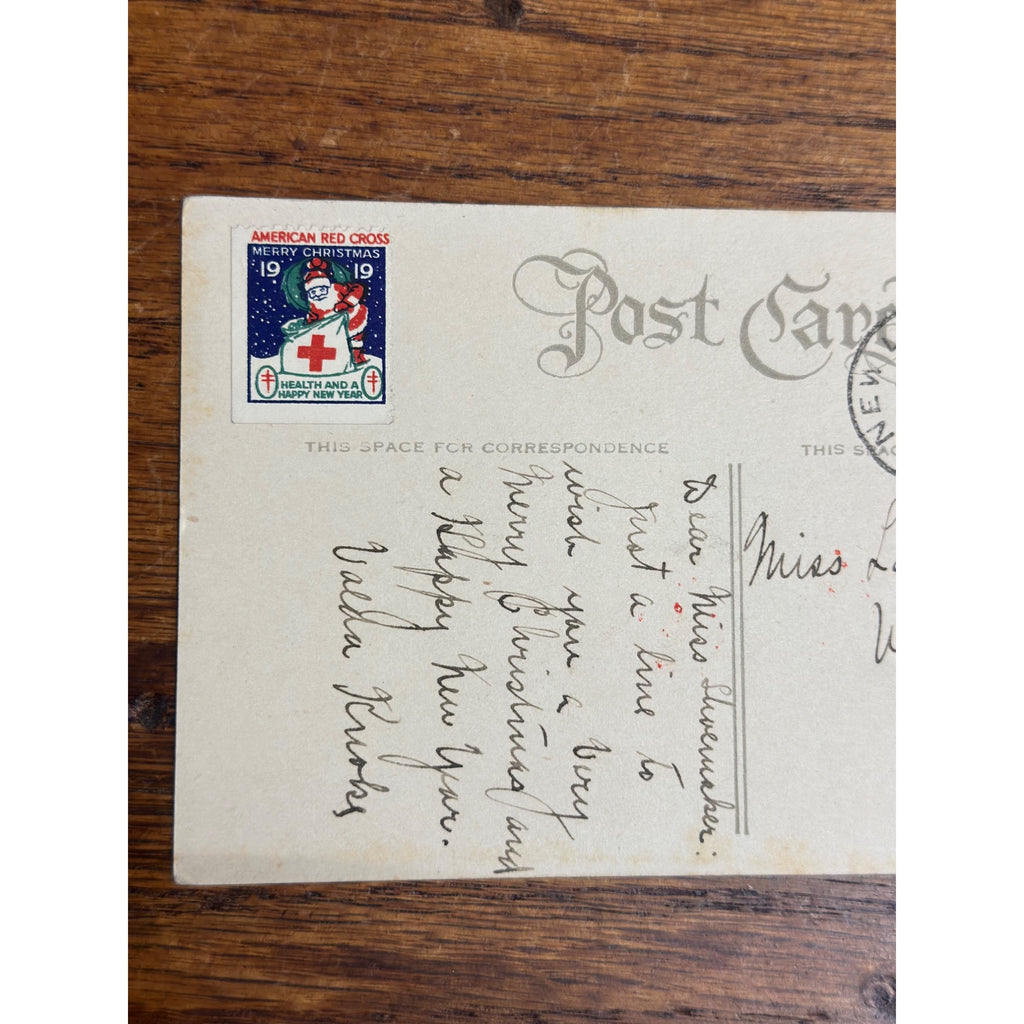 AMERICAN RED CROSS
MERRY CHRISTMAS
19 19
HEALTH AND A
HAPPY NEW YEAR
Post Car
THIS SPACE FOR CORRESPONDENCE
THIS SPAC
NEW
Dear Miss Shoemaker:
Just a line to
wish you a Very
Merry Christmas and
a Happy New Year.
Valda
Miss